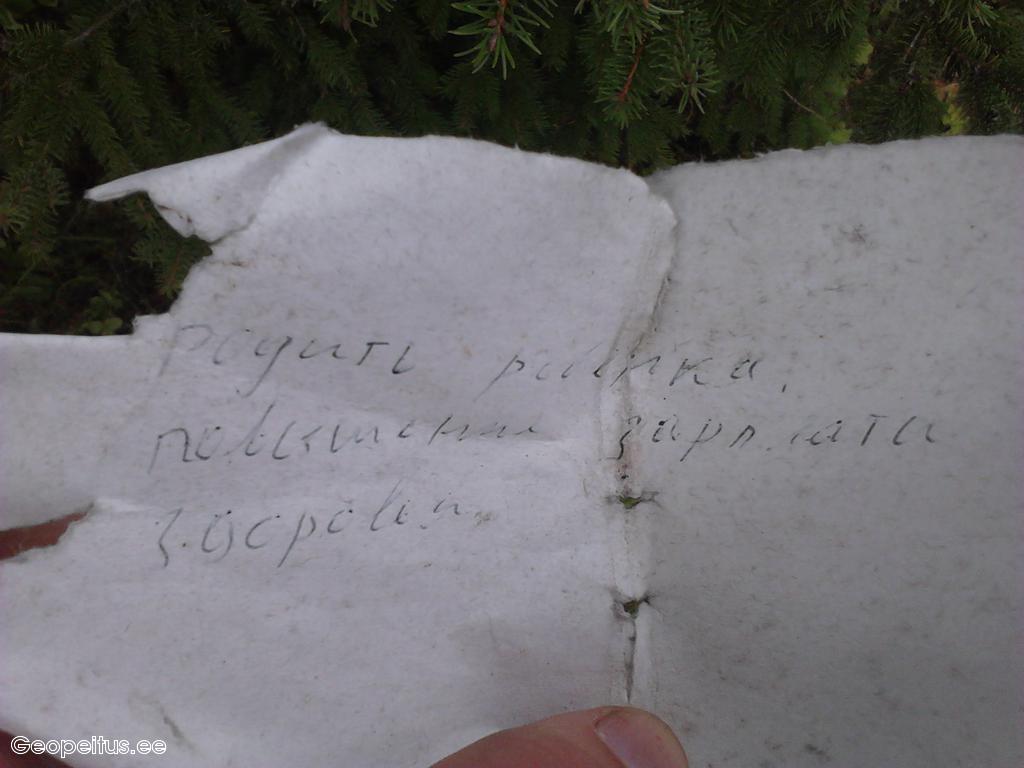 Родить ребенка,
повышение зарплаты
здоровья
Geopeitus.ee